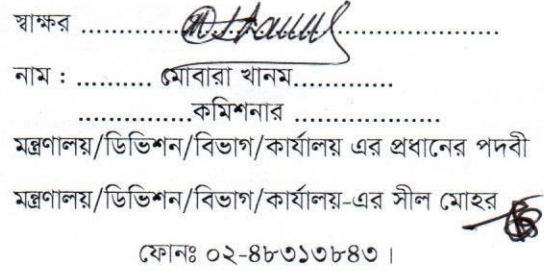 স্বাক্ষর ................................................
নাম : ......... মোবারা খানম.............
...............কমিশনার ...................
মন্ত্রণালয়/ডিভিশন/বিভাগ/কার্যালয় এর প্রধানের পদবী
মন্ত্রণালয়/ডিভিশন/বিভাগ/কার্যালয়-এর সীল মোহর
ফোনঃ ০২-৪৮৩১৩৮৪৩।